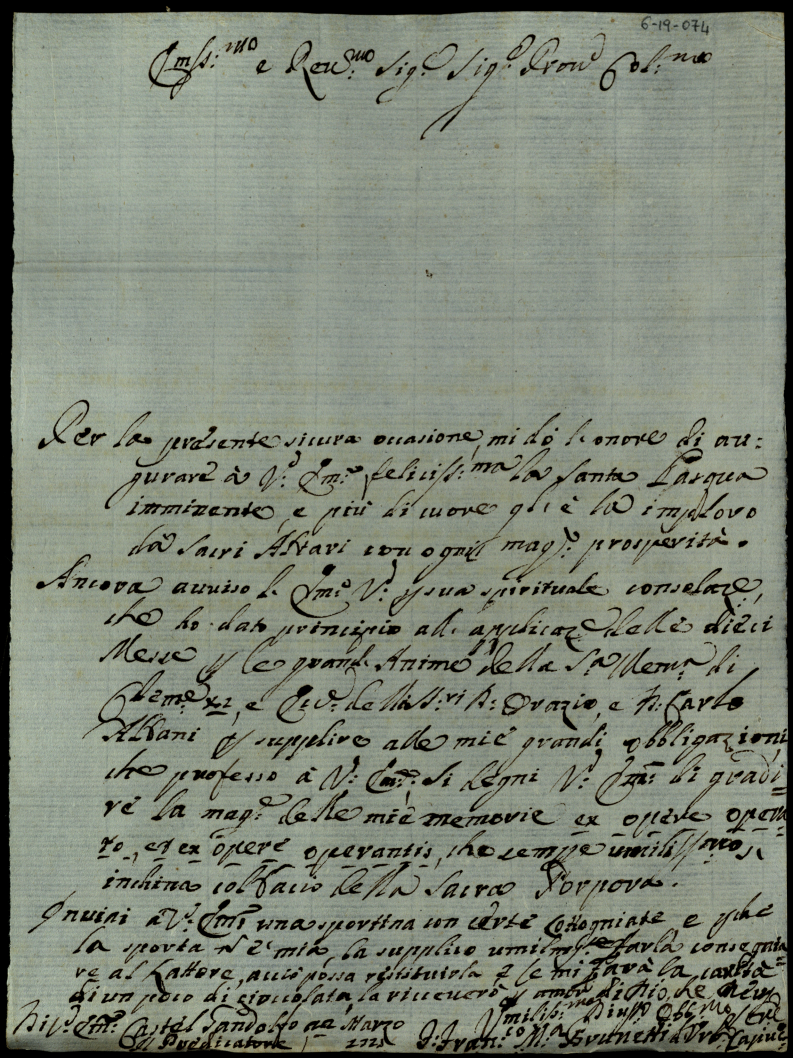 6-19-074
e Reu:mo Sig:e Sig:e Prou Col:mo
Per la presente sicura occasione, mi dò l'onore di au:
gurare à V: Em: feliciss:ma la Santa Pasqua
imminente, e più di cuore gli è la imploro
da Sacri Altari con ogni mag: prosperità.
Ancora auuiso l' Em: V: sua spirituale consolaze,
che ho dato principio all' applicaze delle dieci
Messe le grand' Anime della S:a Mem:a di
Cleme: XI, e della D: Orazio, e D: Carlo
Albani supplire alle mie grandi obbligazioni
che professo à V: Em: Si degni V: Em: di gradi:
re la mag: delle mie memorie ex opere opera
to, et ex opere operantis, che sempre
inchina col bacio della Sacra Porpora.
Inuiai a V: Em: una sportina con certe Cottogniate, e
la sporta n è mia, la supplico farla consegnia
re al Lattore, possa restituirla e se mi farà la carità
di un poco di cioccolata, la riceuerò amor di Dio, che
Di V: Em: Castel Gandolfo Marzo
Predicatore F: Fran:co M:a Brunetti